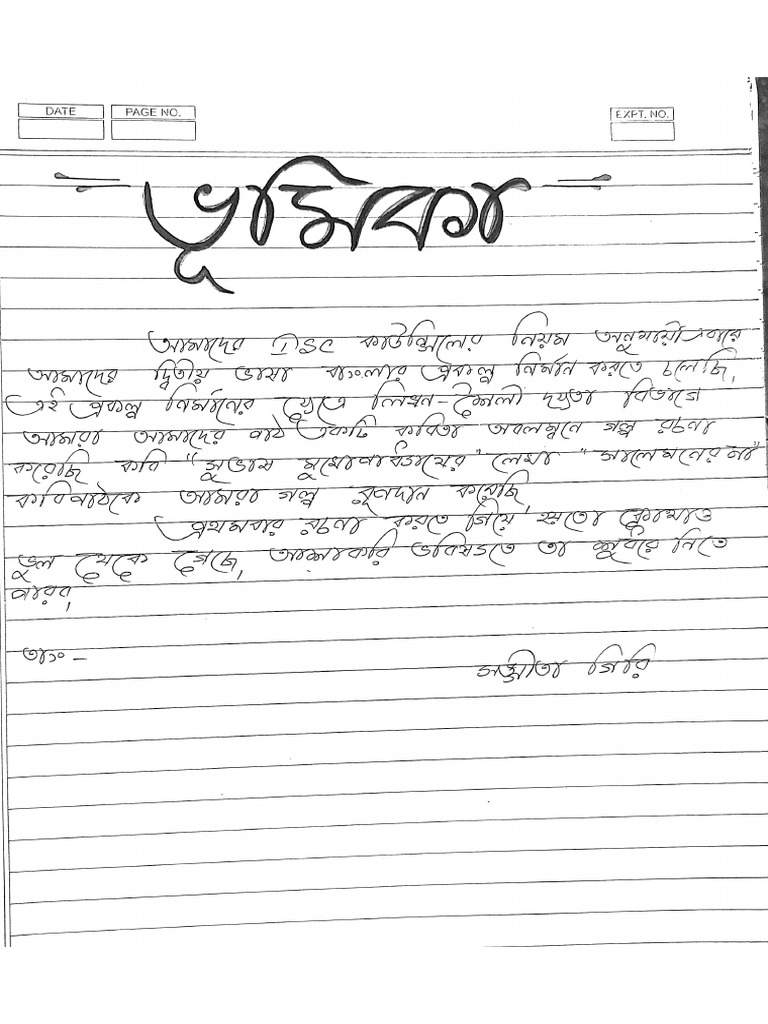 DATE PAGE NO. EXPT. NO.
ভূমিকা
আমাদের ISC কাউন্সিলের নিয়ম অনুযায়ী এবারে
আমাদের দ্বিতীয় ভাষা বাংলার প্রকল্প নির্মান করতে চলেছি,
এই প্রকল্প নির্মানের ক্ষেত্রে লিখন-শৈলী দক্ষতা বিভাগে
আমরা আমাদের পাঠ্য একটি কবিতা অবলম্বনে গল্প রচনা
করেছি কবি "সুভাষ মুখোপাধ্যায়ের" লেখা "সালেমনের মা"
কবিতাটিকে আমরা গল্প রূপদান করেছি,
প্রথমবার রচনা করতে গিয়ে হয়তো কোথাও
ভুল থেকে গেছে, আশাকরি ভবিষ্যতে তা শুধরে নিতে
পারব,
তাং-
গিরি